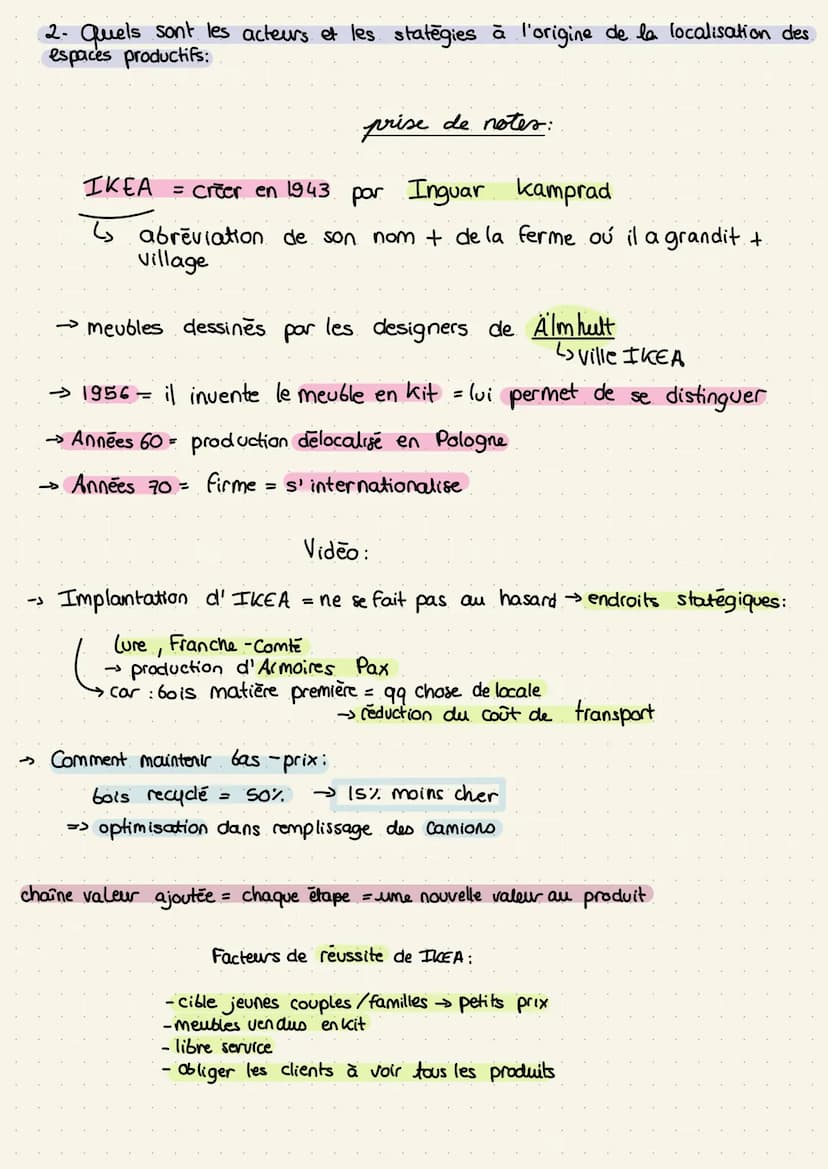 2- Quels sont les acteurs et les statēgies à l'origine de la localisation des
espaces productifs:
prise de notes:
IKEA = créer en 1943 par Inguar kamprad
↳ abréviation de son nom + de la ferme oú il a grandit +
village
→ meubles dessinés par les designers de Älmhult
↳ ville IKEA
→ 1956 = il invente le meuble en kit = lui permet de se distinguer
→ Années 60 = production délocalisé en Pologne
→ Années 70 = firme = s'internationalise
Vidéo:
→ Implantation d'IKEA = ne se fait pas au hasard → endroits statégiques:
Lure, Franche-Comté
→ production d'Armoires Pax
↳ car : bois matière première = qq chose de locale
→ réduction du coût de transport
→ Comment maintenir bas-prix:
bois recyclé = 50% → 15% moins cher
=> optimisation dans remplissage des camions
chaîne valeur ajoutée = chaque étape = une nouvelle valeur au produit
Facteurs de réussite de IKEA:
- cible jeunes couples/familles → petits prix
- meubles vendus en kit
- libre service
- obliger les clients à voir tous les produits